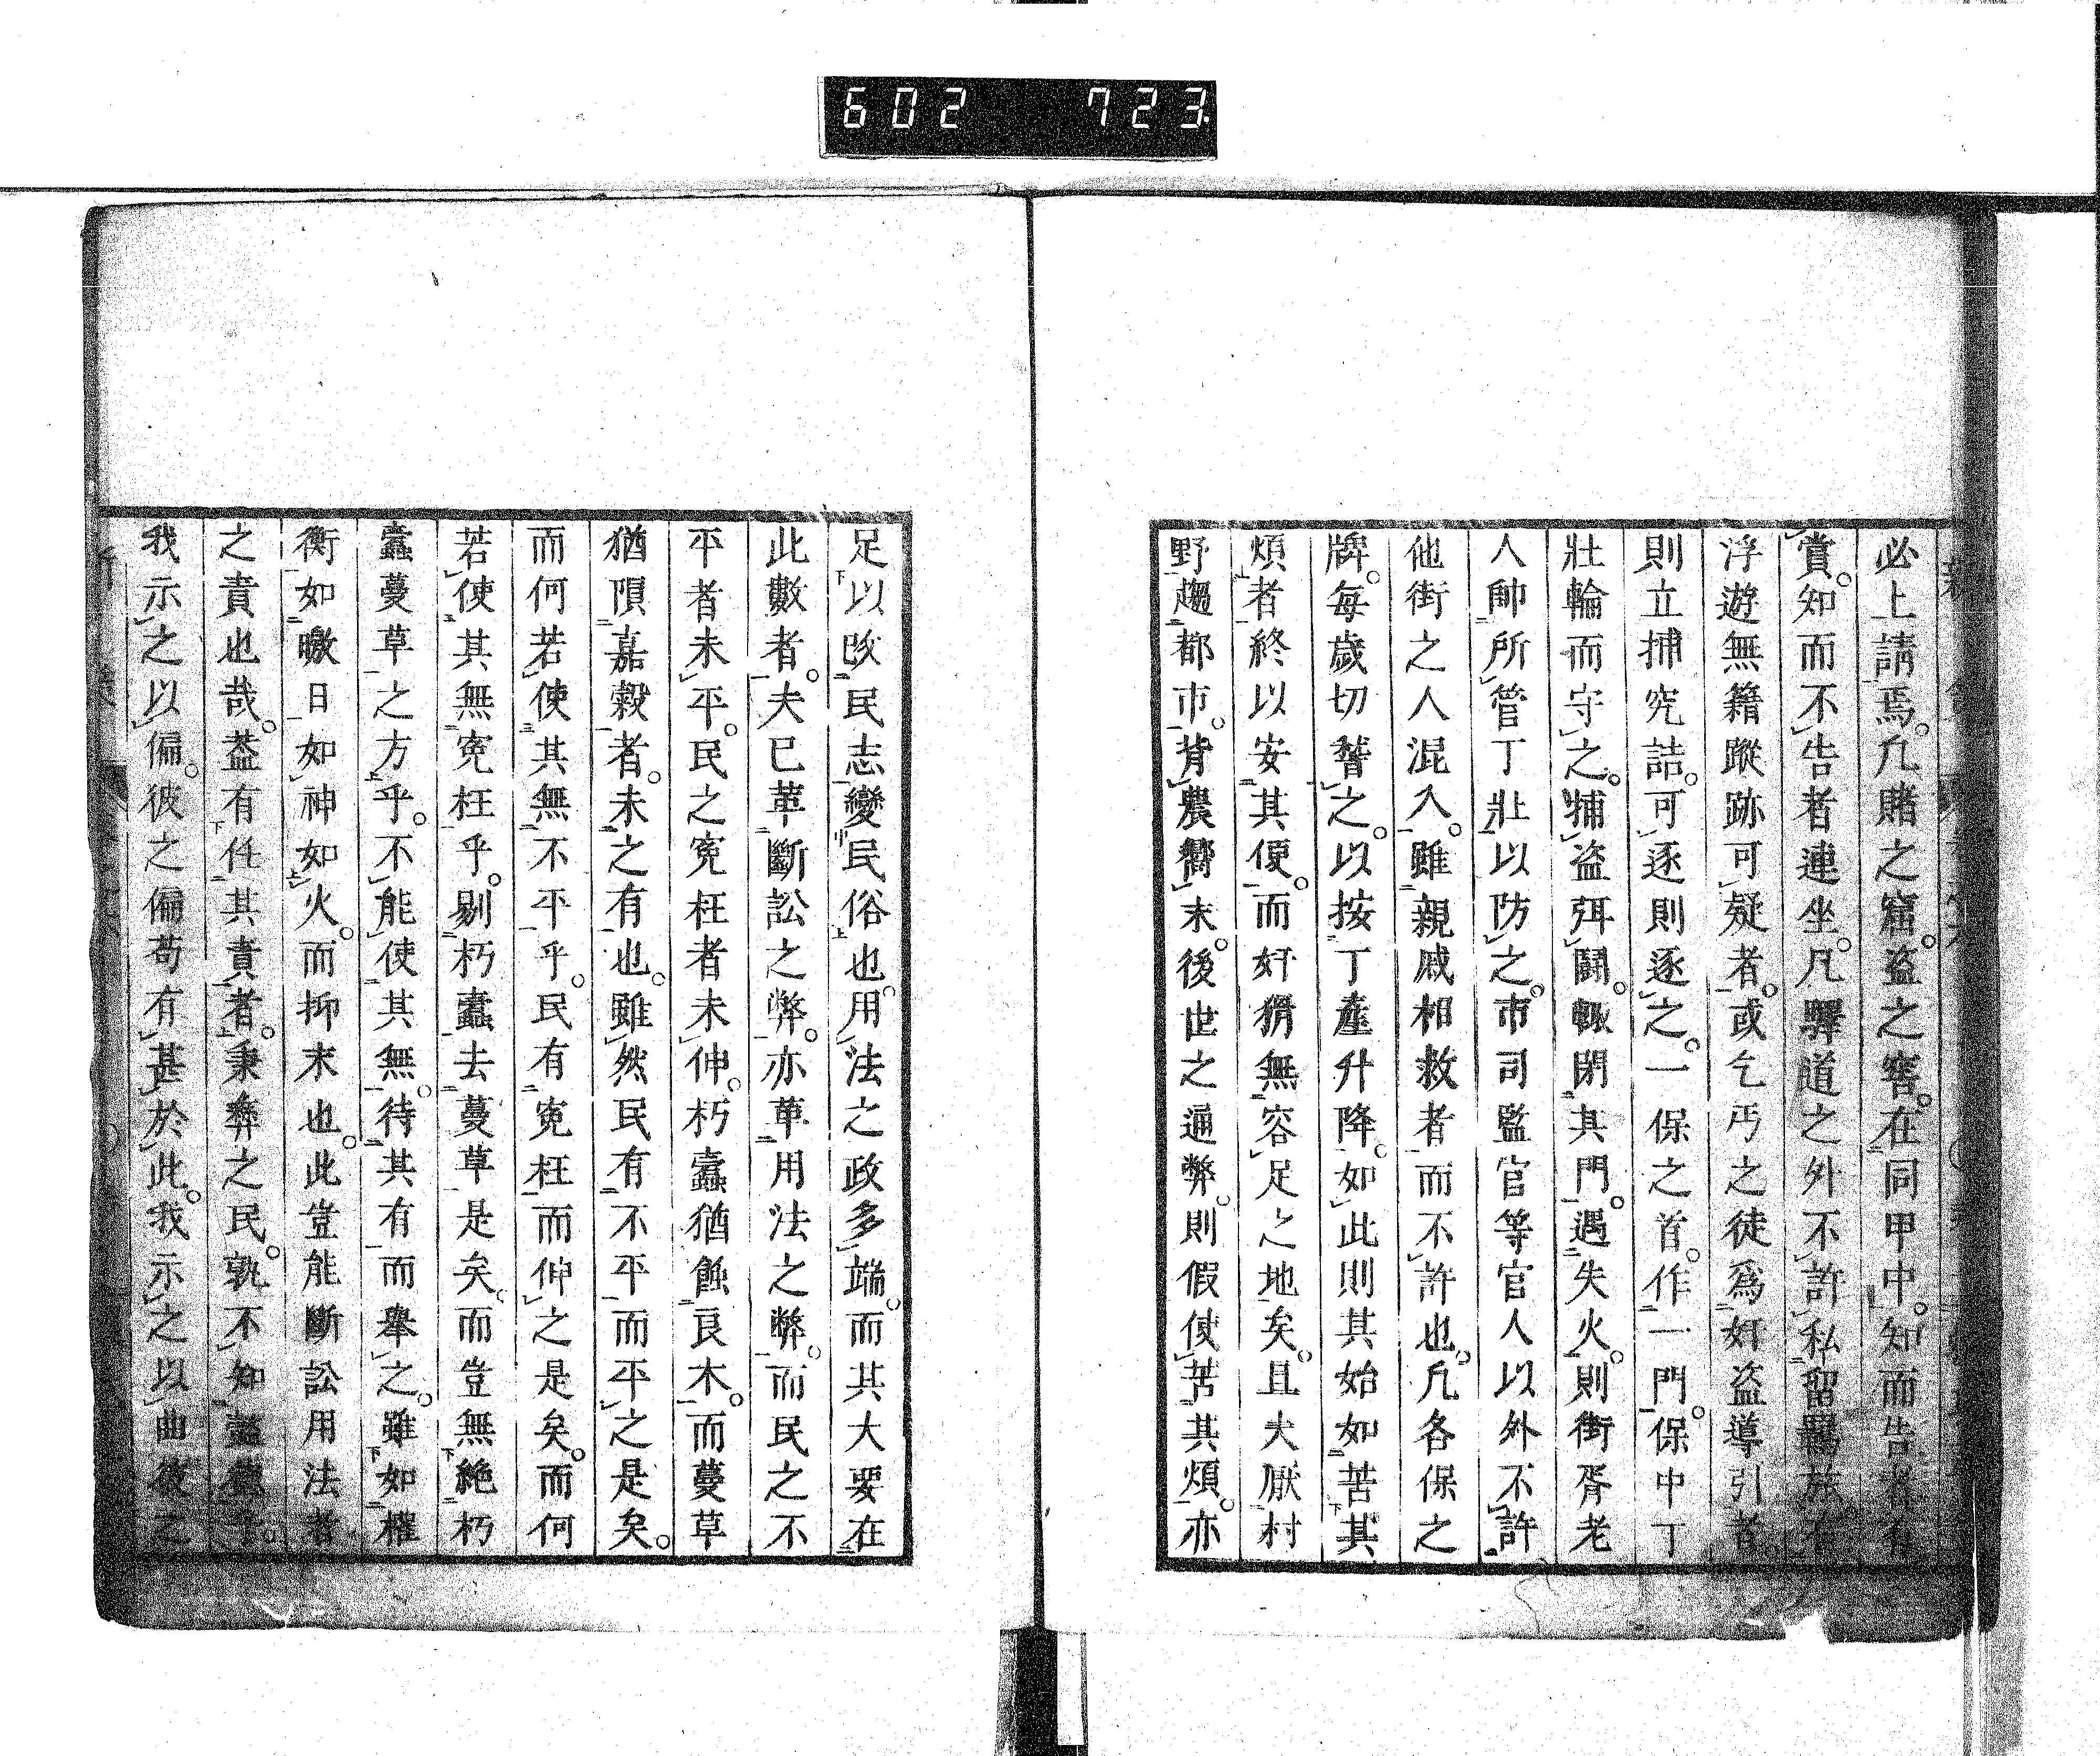 602 723
必上請焉。凡賭之窟。盜之窖。在同甲中。知而告者有
賞。知而不告者連坐。凡驛道之外不許私留羈旅。有
浮遊無籍蹤跡可疑者。或乞丐之徒爲奸盜導引者。
則立捕究詰。可逐則逐之。一保之首。作一門。保中丁
壯輪而守之。捕盜弭鬪。輙閉其門。遇失火。則街胥老
人帥所管丁壯以防之。市司監官等官人以外不許
他街之人混入。雖親戚相救者而不許也。凡各保之
牌。每歲切替之。以按丁產升降。如此則其始如苦其
煩者終以安其便。而奸猾無容足之地矣。且夫厭村
野趨都市。背農嚮末。後世之通弊。則假使苦其煩。亦
足以改民志變民俗也。用法之政多端。而其大要在
此數者。夫已革斷訟之弊。亦革用法之弊。而民之不
平者未平。民之寃枉者未伸。朽蠹猶蝕良木。而蔓草
猶隕嘉穀者。未之有也。雖然民有不平而平之是矣。
而何若使其無不平乎。民有寃枉而伸之是矣。而何
若使其無寃枉乎。剔朽蠹去蔓草是矣。而豈無絶朽
蠹蔓草之方乎。不能使其無。待其有而擧之。雖如權
衡如曒日如神如火。而抑末也。此豈能斷訟用法者
之責也哉。葢有任其責者。秉彝之民。孰不知懿德。
我示之以偏。彼之偏苟有甚於此。我示之以曲彼之